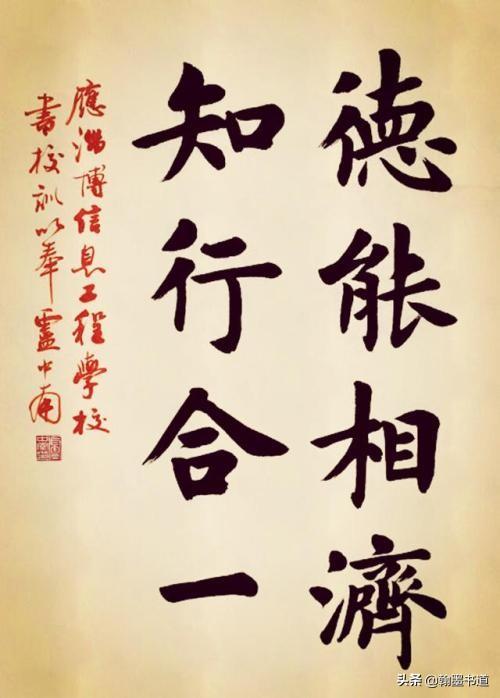 德能相濟
知行合一
應淄博信息工程學校
書校訓以奉盧中南
头条 @翰墨书道